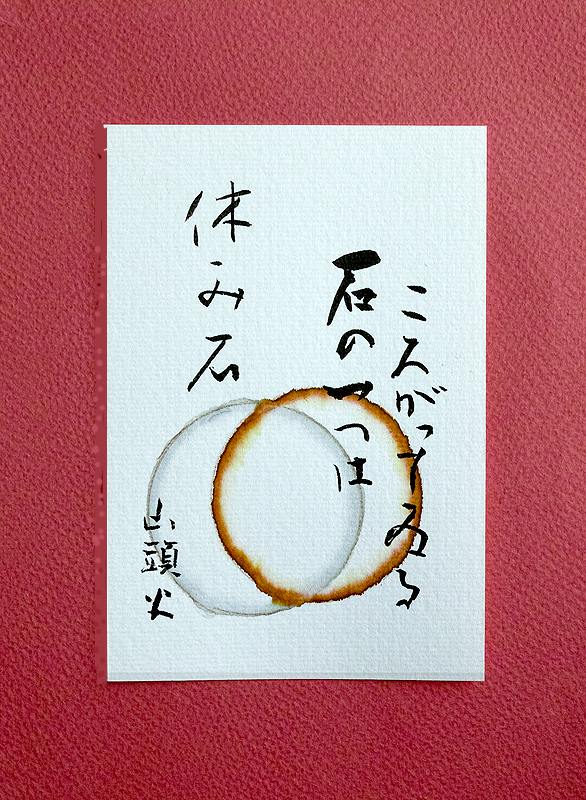 ころがつてゐる
石の一つは
休み石
山頭火